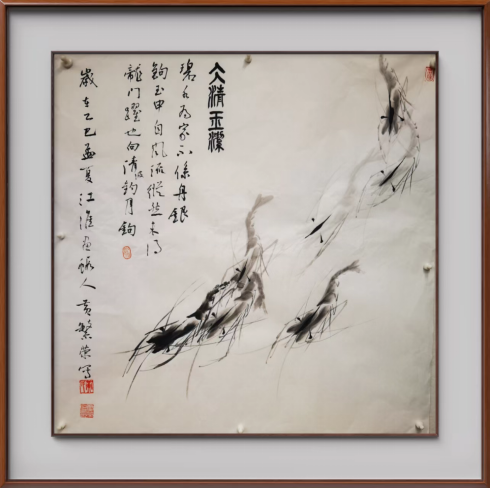 仌清玉潔
碧水為家不係舟銀
鉤玉甲自風流縱然未得
龍门躍也向清波釣月鉤
歲在乙巳孟夏江淮畫蝦人黃繁榮寫